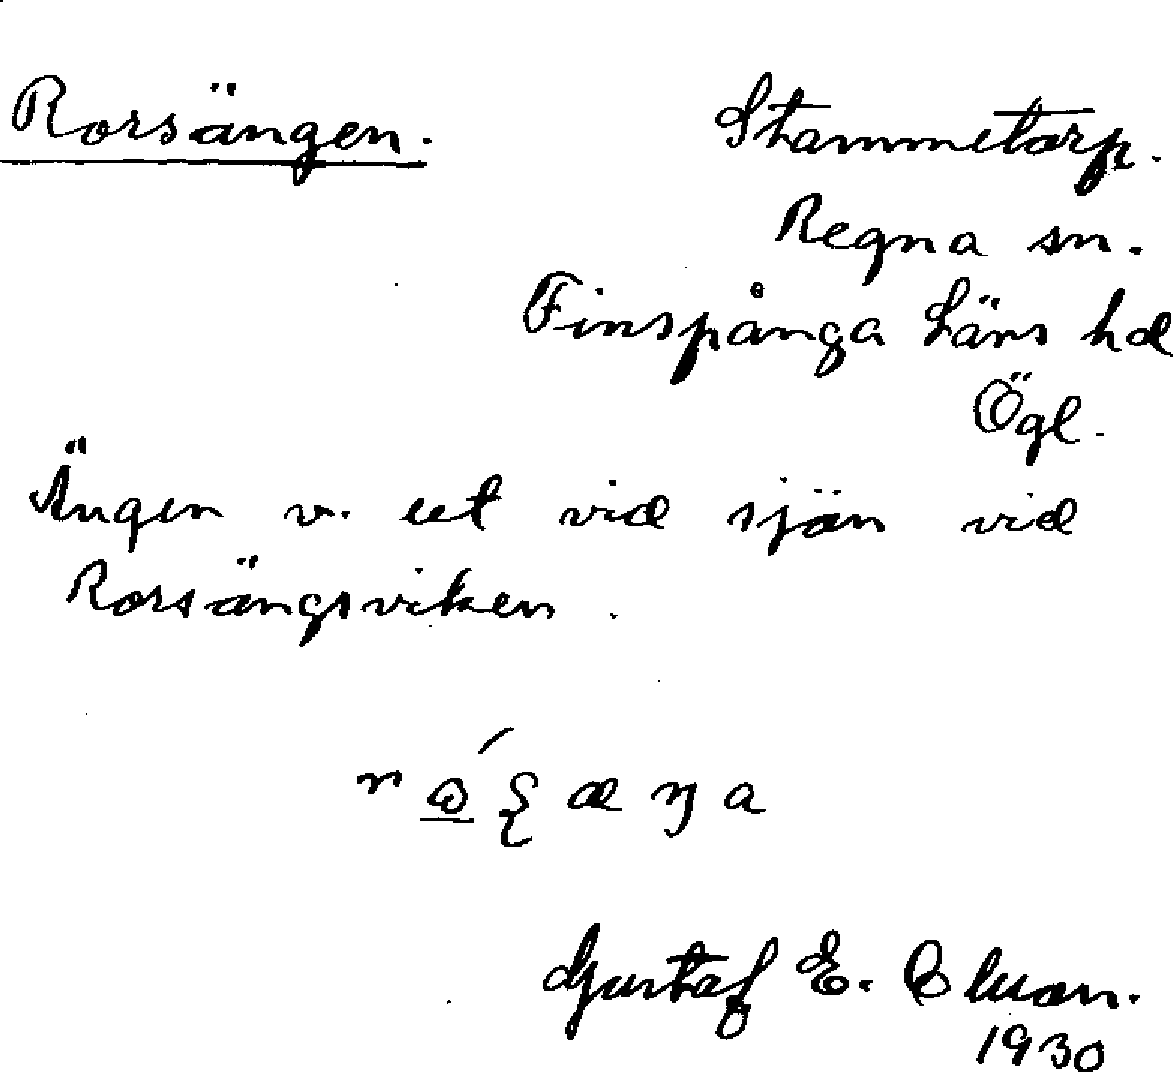 Rorsängen.
Stammetorp.
Regna sn.
Finspånga läns hd
Ögl.
Ängen v. ut vid sjön vid
Rorsängsviken.
Gustaf E.
1930